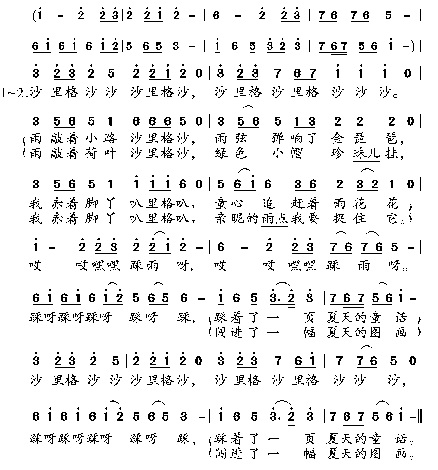 (i - 2 2 3 | 2 1 2 1 2 - | 6 - 2 2 3 | 7 6 7 6 5 - |
6 1 6 1 6 1 2 | 5 6 5 3 - | 1 6 5 3 2 3 | 7 6 7 5 6 1 - )|
3 2 3 2 5 2 2 1 2 0 | 3 2 3 7 6 7 1 1 1 0 |
1~2.沙里格沙沙沙里格沙, 沙里格沙里格沙沙沙。
3 5 6 5 1 6 6 6 5 0 | 3 5 6 5 1 3 2 5 2 0 |
雨敲着小路沙里格沙, 雨弦弹响了金琵琶,
雨敲着荷叶沙里格沙, 绿色小帽珍珠儿挂,
3 5 6 5 1 1 1 1 6 0 | 5 6 1 6 3 6 2 3 2 1 0 |
我赤着脚丫叭里格叭, 童心追赶着雨花花,
我赤着脚丫叭里格叭, 亲昵的雨点我要捉住它。
1 - 2 2 3 | 2 1 2 1 2 - | 6 - 2 2 3 | 7 6 7 6 5 - |
哎 哎嘿嘿踩雨呀, 哎 哎嘿嘿踩雨呀。
6 1 6 1 6 1 2 | 5 6 5 6 - | 1 6 5 3. 2 3 | 7 6 7 5 6 1 6 |
踩呀踩呀踩呀踩呀踩, 踩着了一页夏天的童话
闯进了一幅夏天的图画
3 2 3 2 5 | 2 1 2 1 2 0 | 3 2 3 2 3 2 1 | 7 7 6 5 0 |
沙里格沙沙沙里格沙, 沙里格沙里格沙沙沙,
6 1 6 1 6 1 2 | 5 6 5 3 - | 1 6 5 3. 2 3 | 7 6 7 5 6 1 - ‖
踩呀踩呀踩呀踩呀踩, 踩着了一页夏天的童话。
闯进了一幅夏天的图画。